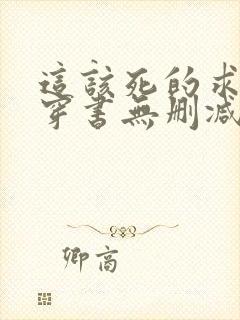 這該死的求
穿書無刪減
卿高